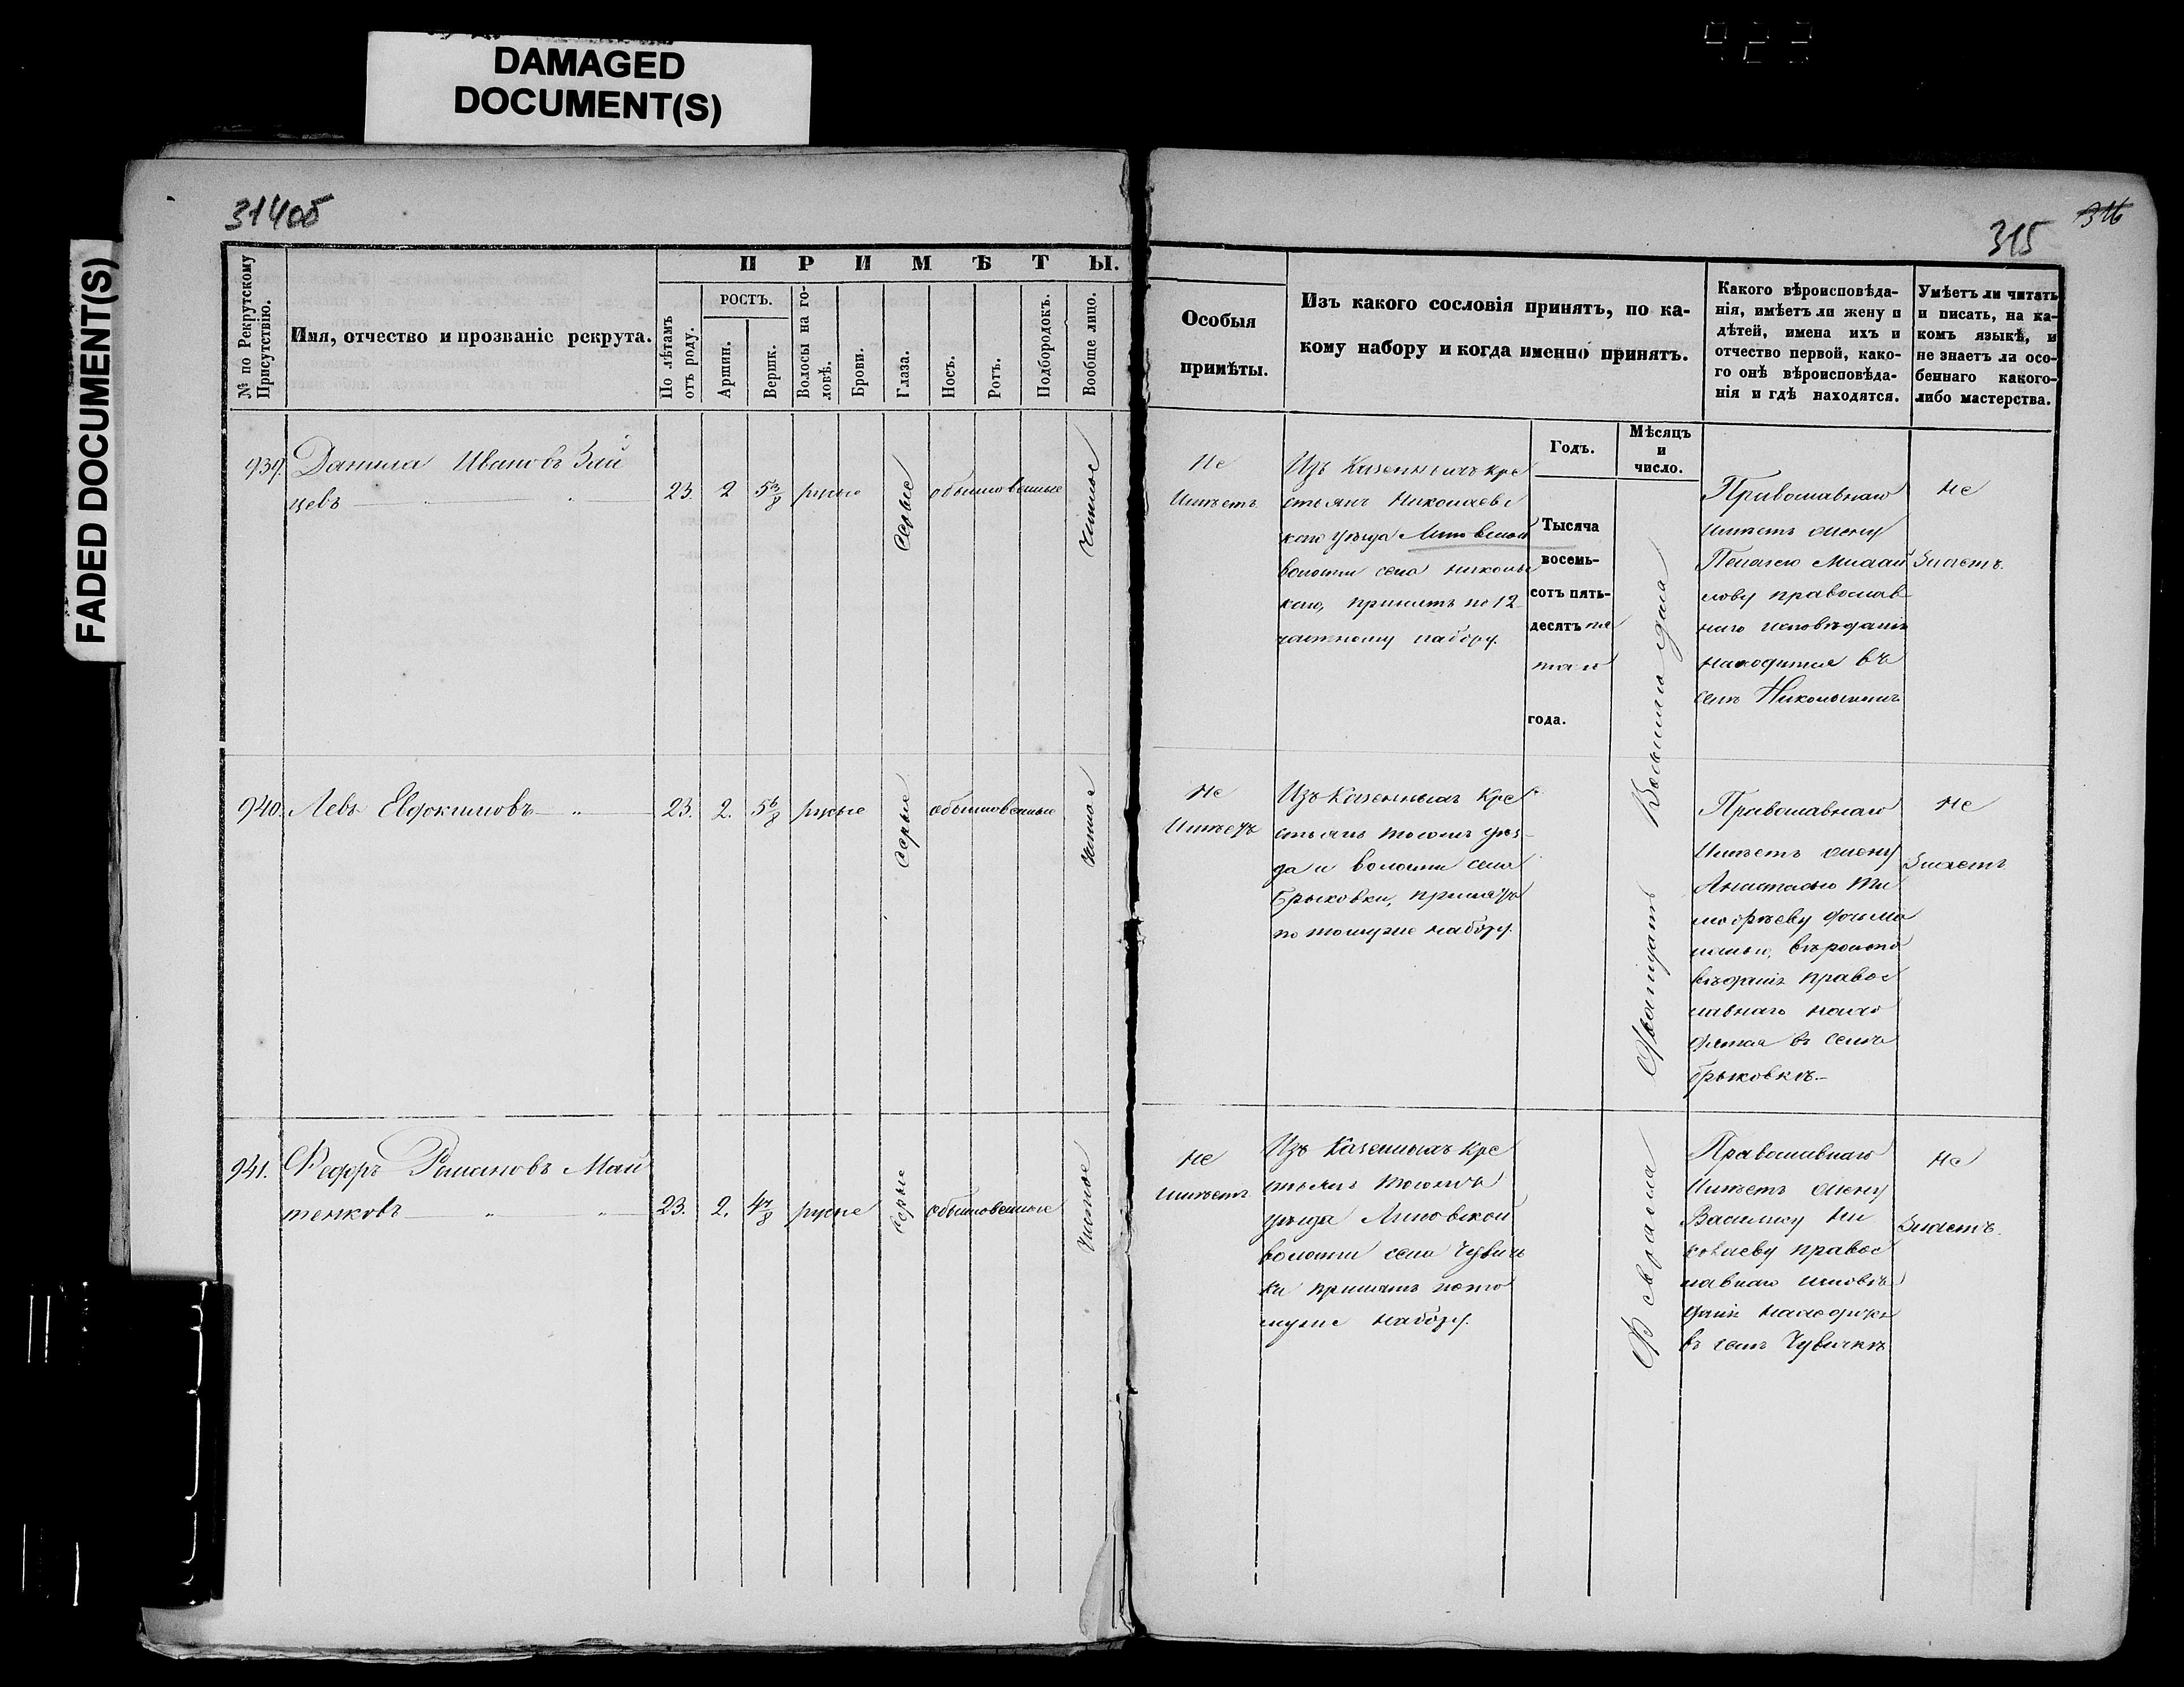 DAMAGED
DOCUMENT(S)
FADED DOCUMENT(S)
314об
№ по Рекрутскому
Присутствію.
Имя, отчество и прозваніе рекрута.
ПРИМѢТЫ.
По лѣтамъ
отъ роду.
РОСТЪ.
Аршин.
Вершк.
Волосы на го-
ловѣ.
Брови.
Глаза.
Носъ.
Ротъ.
Подбородокъ.
Вообще лицо.
939. Данила Ивановъ Зай
цевъ
23. 2 5 3/8 русые сѣрые обыкновенные чистое
940. Левъ Евдокимовъ
23. 2. 5 6/8 русые сѣрые обыкновенные чистое
941. Федоръ Романовъ Май
тенковъ
23. 2. 4 7/8 русые сѣрые обыкновенные чистое
315
316
Особыя
примѣты.
Изъ какого сословія принятъ, по ка-
кому набору и когда именно принятъ.
Какого вѣроисповѣда-
нія, имѣетъ ли жену и
дѣтей, имена ихъ и
отчество первой, како-
го онѣ вѣроисповѣда-
нія и гдѣ находятся.
Умѣетъ ли читать
и писать, на ка-
комъ языкѣ, и
не знаетъ ли осо-
беннаго какого-
либо мастерства.
Годъ.
Мѣсяцъ
и
число.
Не
Имѣетъ
Изъ Казенныхъ кре
стьянъ Николаевс
каго уѣзда Липовской
волости села Николь
каго, принятъ по 12
частному набору.
Тысяча
восемь-
сотъ пять-
десятъ пя
таго
года.
Февраля двадцать восьмаго дня
Православнаго
имѣетъ жену
Пелагею Михай
лову православ
наго исповѣданія
находится въ
селѣ Никольскомъ
Не
Знаетъ.
Не
Имѣетъ
Изъ Казенныхъ Кре
стьянъ тогожъ уѣз-
да и волости села
Брыковки, принятъ
по томуже набору.
Православнаго
Имѣетъ жену
Анастасью Ти
мофѣеву
вѣроиспо
вѣданія правос
лавнаго нахо
дятся въ селѣ
Брыковкѣ.
Не
Знаетъ
Не
имѣетъ
Изъ Казенныхъ кре
стьянъ тогожъ
уѣзда Липовской
волости села Чувич
ки принятъ по то
муже набору.
Православнаго
Имѣетъ жену
Василису Ни
колаеву правос
лавнаго исповѣ
данія находится
въ селѣ Чувичкѣ
Не
Знаетъ.